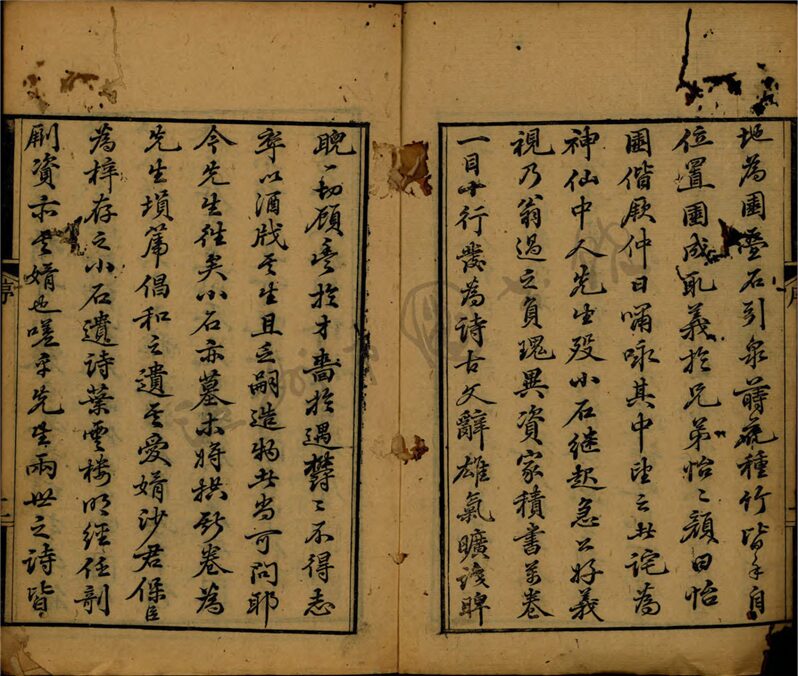 地為圃疊石引泉蒔花種竹皆手自
位置圃成耴義於兄弟怡〻顏曰怡
圃偕厥仲日嘯咏其中望之者詫為
神仙中人先生歿小石继起急公好義
視乃翁過之負瑰異資家積書萬卷
一目十行發為詩古文辭雄氣曠邈睥
睨一切顧豐於才嗇於遇欝〻不得志
卒以酒戕其生且乏嗣造物者尚可問耶
今先生往矣小石亦墓木將拱斯卷為
先生塤篪倡和之遺其愛婿沙君保臣
為梓存之小石遺詩葉雲樓明經任剞
劂資亦其婿也嗟乎先生兩世之詩皆
序
二